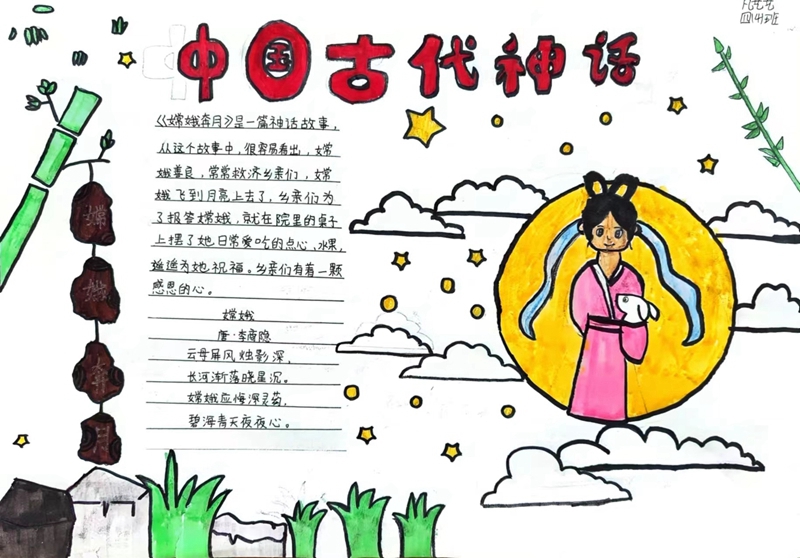 四(4)班
中国古代神话
《嫦娥奔月》是一篇神话故事，
从这个故事中，很容易看出，嫦
娥善良，常常救济乡亲们，嫦
娥飞到月亮上去了，乡亲们为
了报答嫦娥，就在院里的桌子
上摆了她日常爱吃的点心、水果，
遥遥为她祝福。乡亲们有着一颗
感恩的心。
嫦娥
唐·李商隐
云母屏风烛影深，
长河渐落晓星沉。
嫦娥应悔偷灵药，
碧海青天夜夜心。
嫦
娥
奔
月